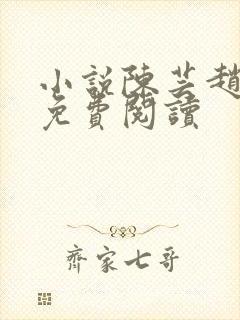 小說陳芸趙
免費閱讀
齊家七哥